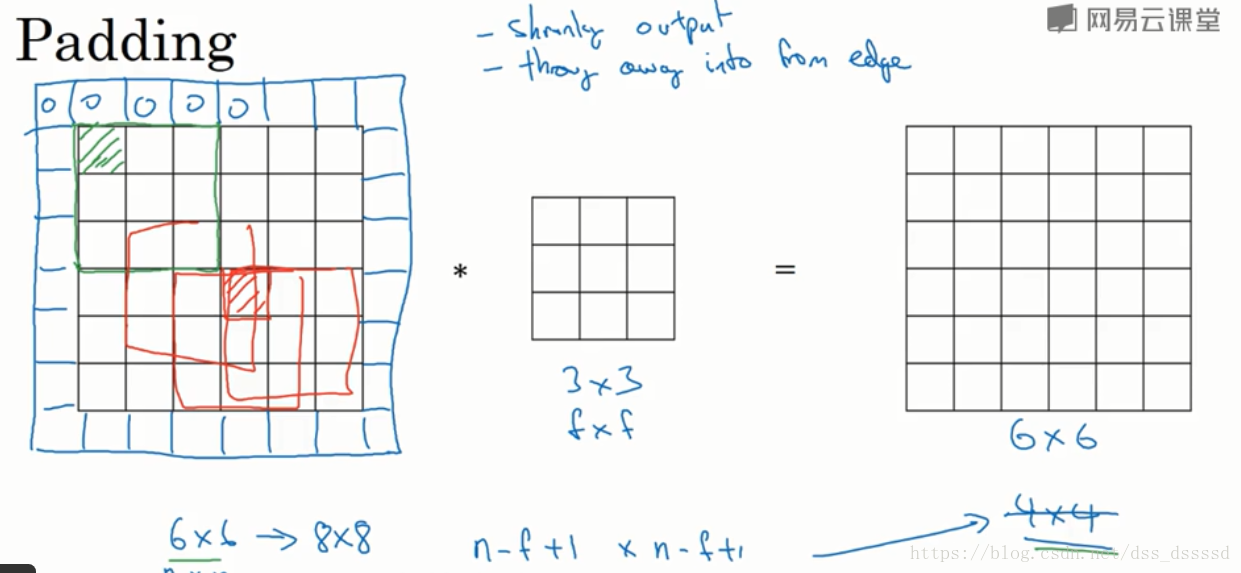 Padding
- shrinky output
- throw away info from edge
网易云课堂
0 0 0 0 0
*
=
3 x 3
f x f
6 x 6
4 x 4
6 x 6 → 8 x 8
n - f + 1 x n - f + 1
https://blog.csdn.net/dss_dssssd